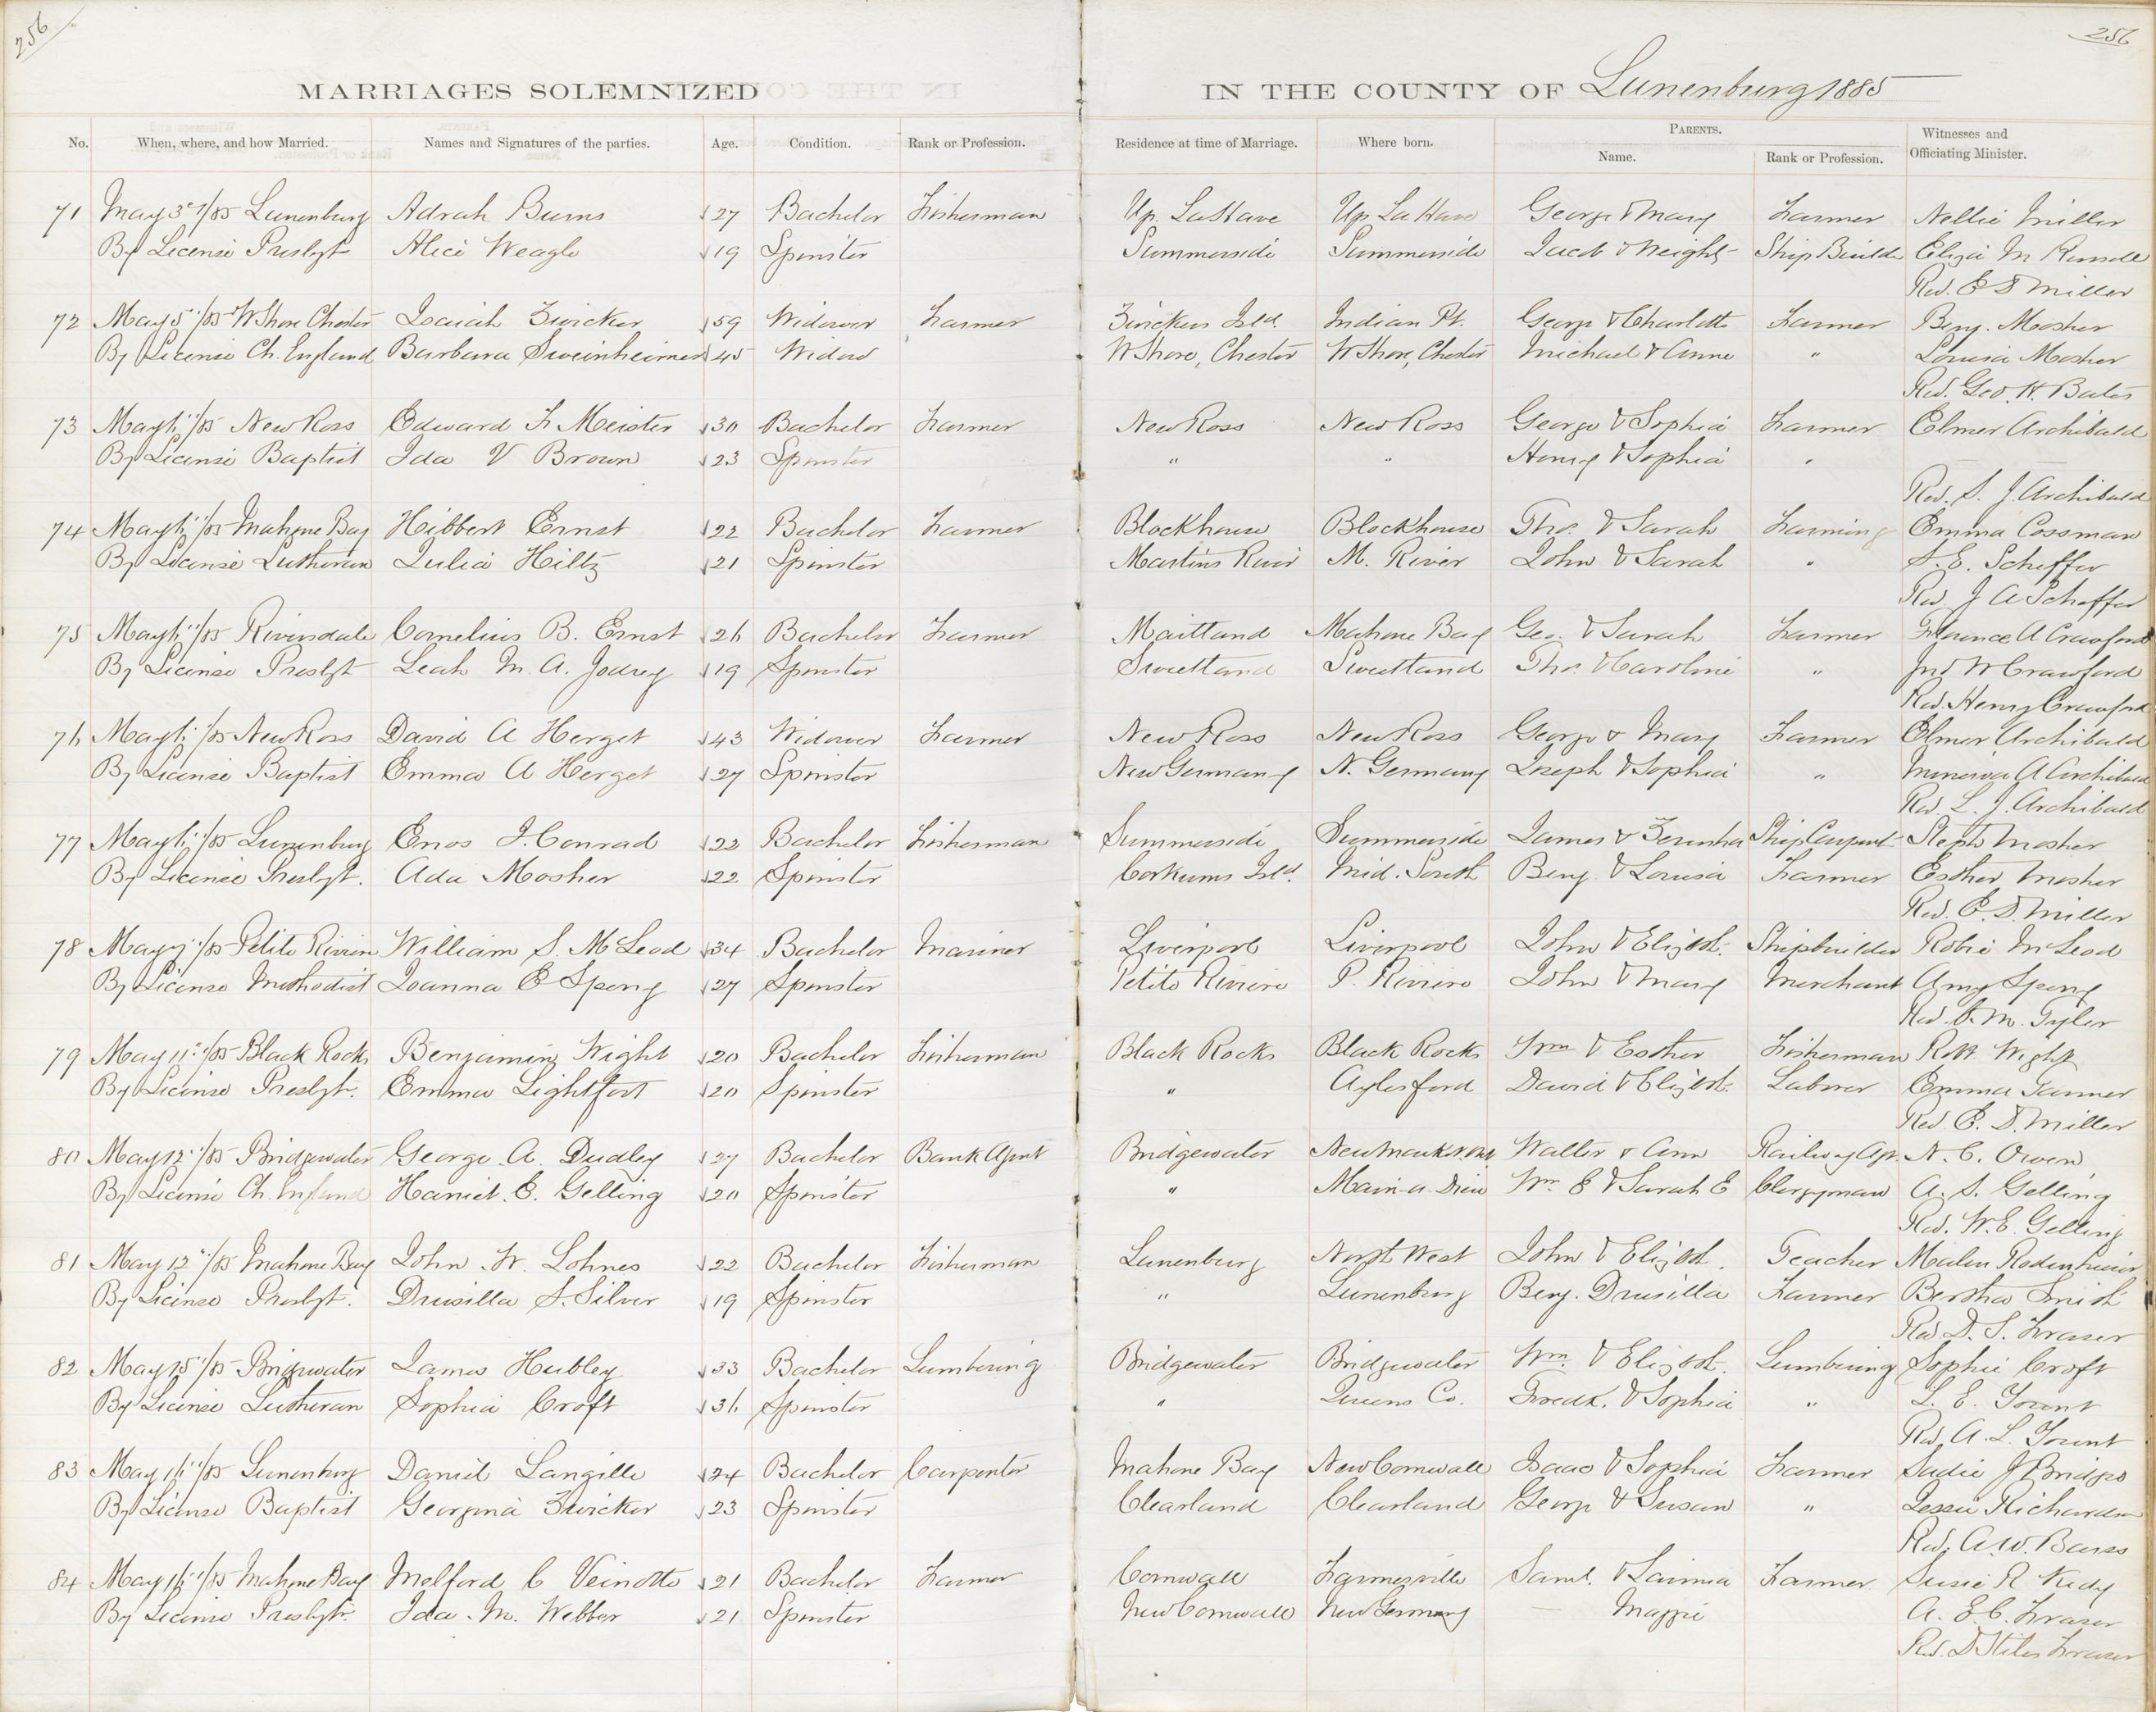 256
256
MARRIAGES SOLEMNIZED IN THE COUNTY OF Lunenburg 1885
No. When, where, and how Married. Names and Signatures of the parties. Age. Condition. Rank or Profession. Residence at time of Marriage. Where born. PARENTS. Name. Rank or Profession. Witnesses and Officiating Minister.
71 May 3rd/85 Lunenburg Adrah Burns 27 Bachelor Fisherman Up. LaHave Up LaHave George & Mary Farmer Nellie Miller
By License Presbyt Alice Weagle 19 Spinster Summerside Summerside Jacob & Ship Builder Eliza M Russell
Rev. E D Miller
72 May 5"/85 W Shore Chester Isaiah Zwicker 59 Widower Farmer Zwickers Isld. Indian Pt. George & Charlotte Farmer Benj. Mosher
By License Ch. England Barbara Sweinheimer 45 Widow W Shore, Chester W Shore, Chester Michael & Anne " Louisa Mosher
Rev. Geo. H. Butler
73 May 6"/85 New Ross Edward F Meister 30 Bachelor Farmer New Ross New Ross George & Sophia Farmer Elmer Archibald
By License Baptist Ida V Brown 23 Spinster " " Henry & Sophia "
Rev. S. J. Archibald
74 May 6"/85 Mahone Bay Hibbert Ernst 22 Bachelor Farmer Blockhouse Blockhouse Thos. & Sarah Farming Emma Cossman
By License Lutheran Julia Hiltz 21 Spinster Martins River M. River John & Sarah " S. E. Scheffer
Rev. J A Scheffer
75 May 6"/85 Riversdale Cornelius B. Ernst 26 Bachelor Farmer Maitland Mahone Bay Geo. & Sarah Farmer Florence A Crawford
By License Presbyt Leah M. A. Jodrey 19 Spinster Sweetland Sweetland Thos. & Caroline " Jno W Crawford
Rev. Henry Crawford
76 May 6"/85 New Ross David A Herget 43 Widower Farmer New Ross New Ross George & Mary Farmer Elmer Archibald
By License Baptist Emma A Herget 27 Spinster New Germany N. Germany Joseph & Sophia " Minerva A Archibald
Rev L. J. Archibald
77 May 6"/85 Lunenburg Enos J. Conrad 22 Bachelor Fisherman Summerside Summerside James & Ship Carpent. Steph Mosher
By License Presbyt. Ada Mosher 22 Spinster Corkums Isld. Mid. South Benj. & Louisa Farmer Esther Mosher
Rev. E. D. Miller
78 May 7"/85 Petite Riviere William S. McLeod 34 Bachelor Mariner Liverpool Liverpool John & Elizbth. Shipbuilder Robie McLeod
By License Methodist Joanna E Sperry 27 Spinster Petite Riviere P. Riviere John & Mary Merchant Amy Sperry
Rev. M. Tyler
79 May 11"/85 Black Rocks Benjamin Wight 20 Bachelor Fisherman Black Rocks Black Rocks Wm & Esther Fisherman Robt. Wight
By License Presbyt. Emma Lightfoot 20 Spinster " Aylesford David & Elizbth. Laborer Emma Tanner
Rev E. D. Miller
80 May 12"/85 Bridgewater George. A. Dudley 27 Bachelor Bank Agent Bridgewater Walter & Ann Railway Agt. N. C. Owen
By License Ch. England Harriet. E. Gelling 20 Spinster " Main-a-Dieu Wm. E & Sarah E Clergyman A. S. Gelling
Rev. W. E. Gelling
81 May 12"/85 Mahone Bay John. W. Lohnes 22 Bachelor Fisherman Lunenburg North West John & Elizbth. Teacher Rodenhizer
By License Presbyt. Drusilla S. Silver 19 Spinster " Lunenburg Benj. Drusilla Farmer Bertha Smith
Rev D. S. Fraser
82 May 15"/85 Bridgewater James Hubley 33 Bachelor Lumbering Bridgewater Bridgewater Wm. & Elizbth. Lumbering Sophie Croft
By License Lutheran Sophia Croft 36 Spinster " Queens Co. Fredk. & Sophia " L. E. Yount
Rev. A. L. Yount
83 May 16"/85 Lunenburg Daniel Langille 24 Bachelor Carpenter Mahone Bay New Cornwall Isaac & Sophia Farmer Sadie J Bridges
By License Baptist Georgina Zwicker 23 Spinster Clearland Clearland George & Susan " Jessie Richardson
Rev. A. W. Barss
84 May 16"/85 Mahone Bay Melford C Veinotte 21 Bachelor Farmer Cornwall Farmerville Saml. & Lavinia Farmer Susie R Kedy
By License Presbytr. Ida. M. Webber 21 Spinster New Cornwall New Germany — Maggie A. E. C. Fraser
Rev. D Stiles Fraser